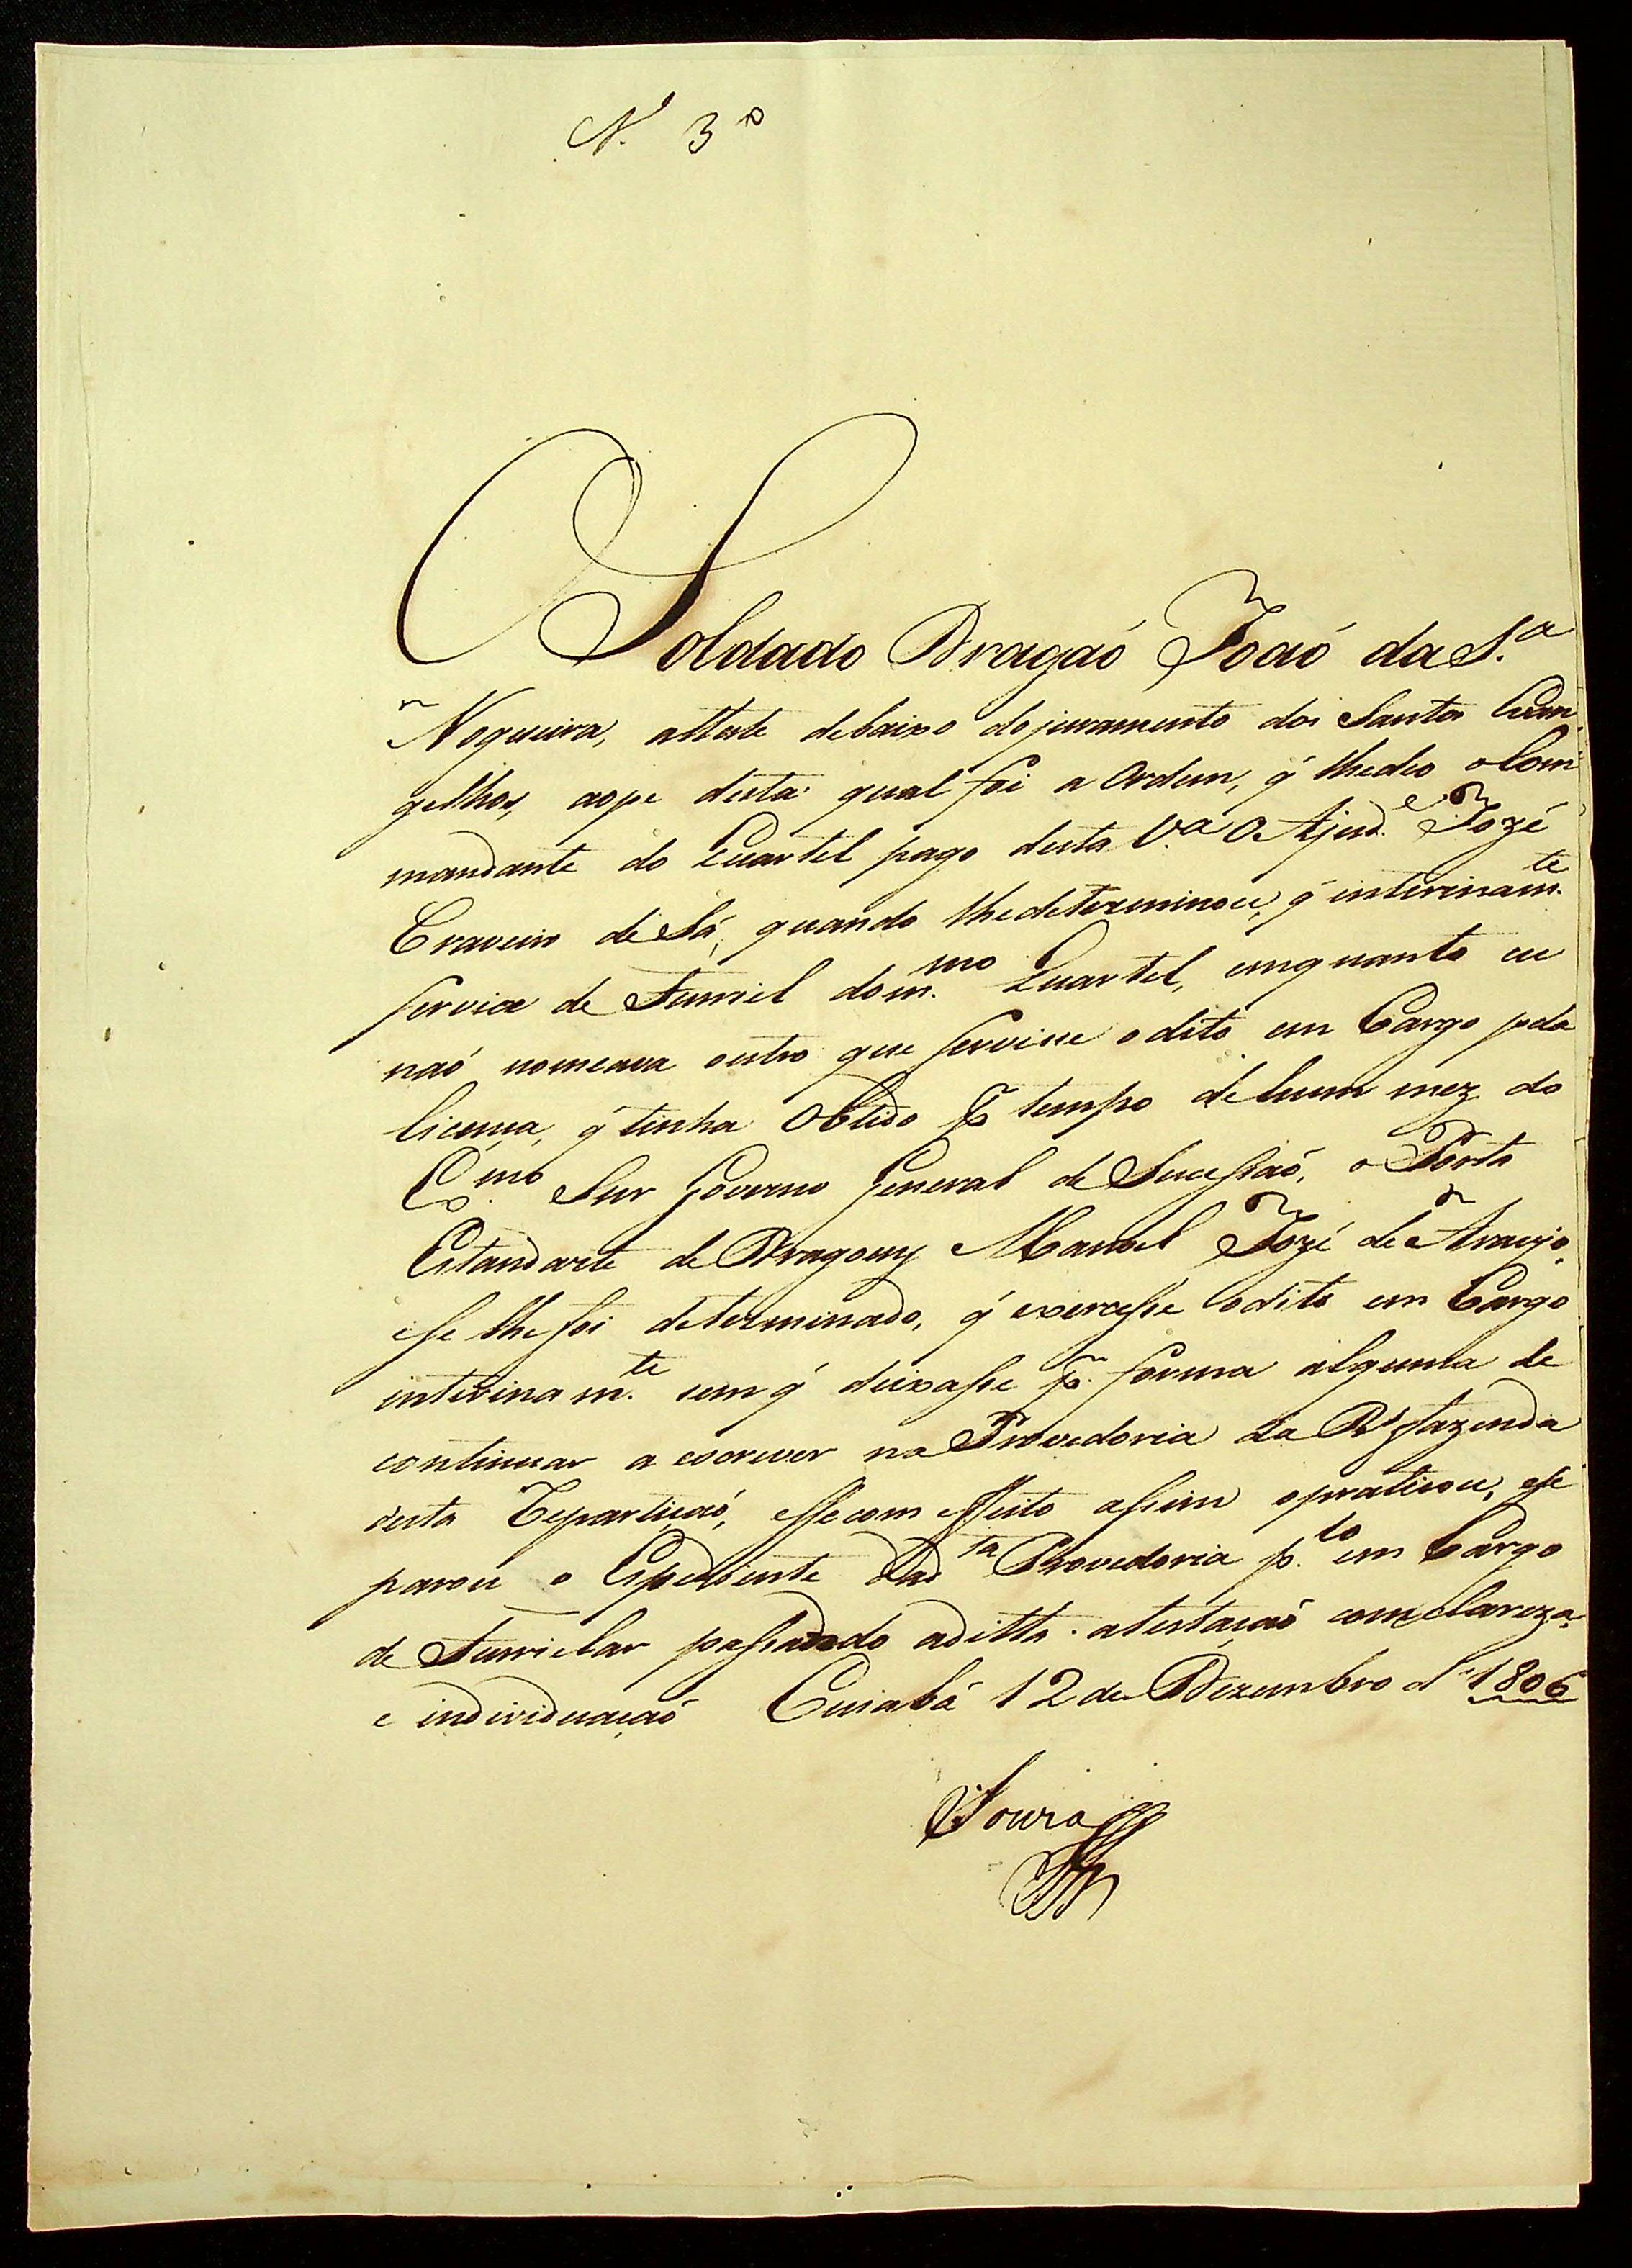 N. 3º
O Soldado Dragaó Joaó da S.ª
Nogueira, atteste debaixo do juramento dos Santos Evan
gelhos, ao pe desta qual foi a Ordem, q' lhe deo o Com
mandante do Quartel pago desta V.ª O Ajud.e Jozé
Craveiro de Sá, quando lhe determinou, q' interinam.te
servia de Furriel do m.mo Quartel, emquanto eu
naó nomeava outro que servisse o dito em Cargo pela
licença, q' tinha Obtido p. tempo de hum mez do
Ex.mo Snr Governo General de Sucessaó, o Porta
Estandarte de Dragoens Manoel Jozé de Araujo,
e se lhe foi determinado, q' exercesse o dito em Cargo
interinam.te sem q' deixasse p. forma alguma de
continuar a escrever na Provedoria da R.l fazenda
desta Repartiçaó, e se com effeito assim o praticou, e se
parou o Espediente da d.ta Provedoria p.lo em Cargo
de Furrielar passando a ditta atestaçaó com clareza,
e individuaçaó Cuiabá 12 de Dezembro d' 1806
Souza